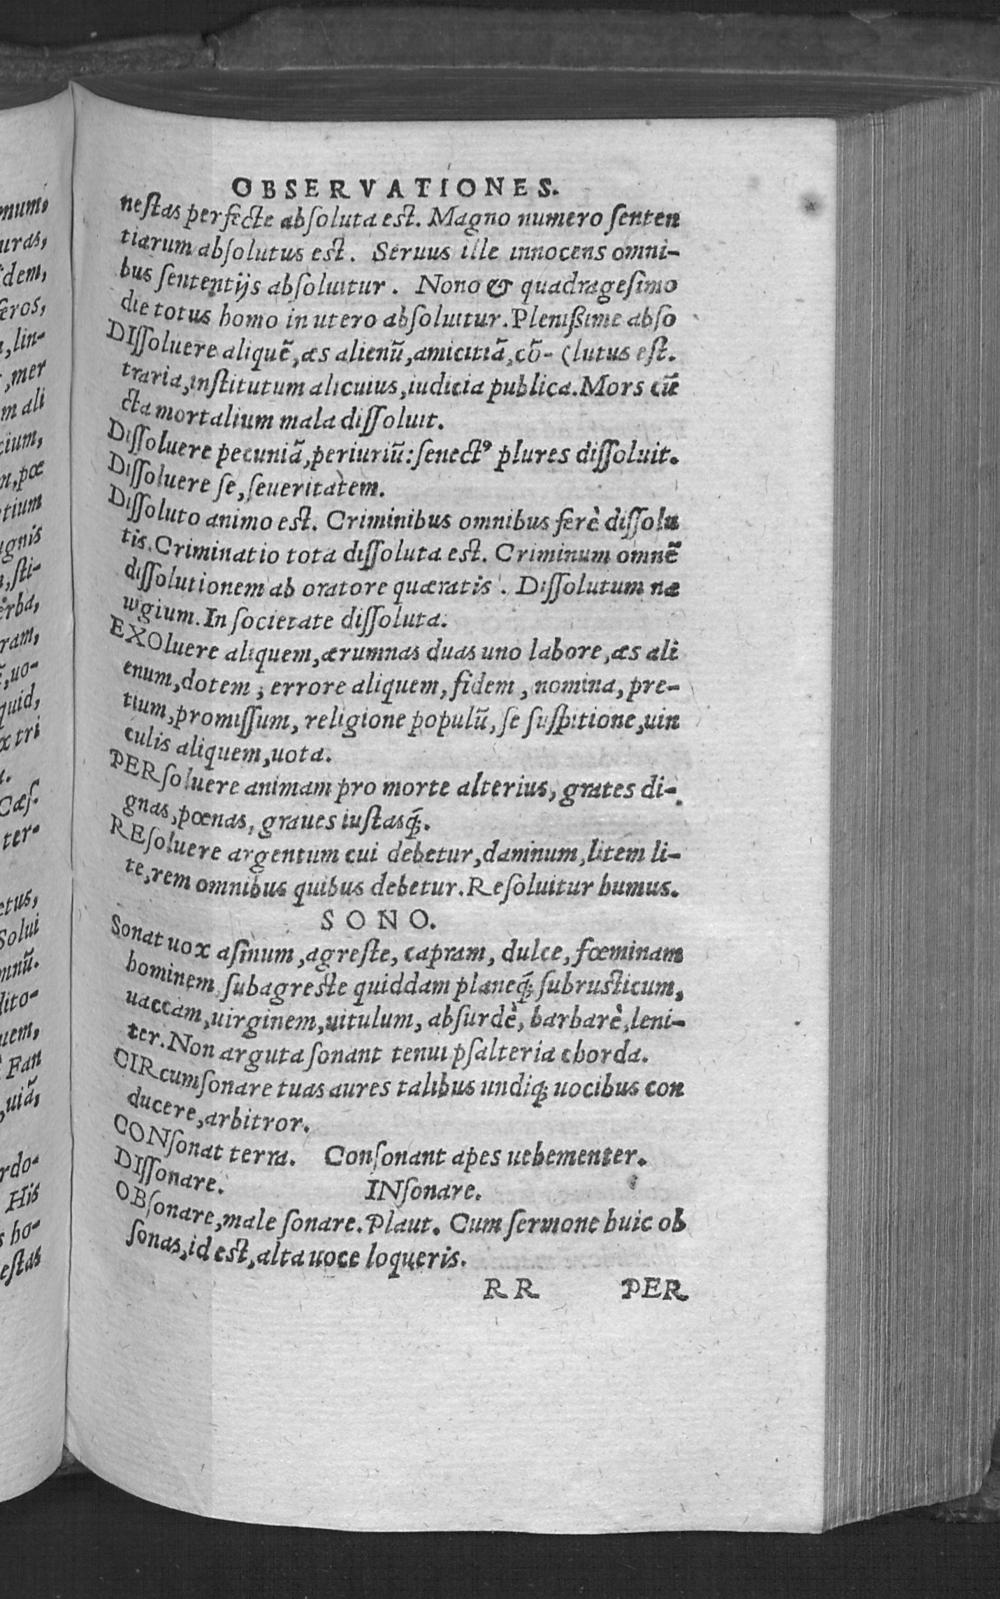 OBSERVATIONES.
neſtas perfecte abſoluta est. Magno numero ſenten
tiarum abſolutus est. Seruus ille innocens omni-
bus ſententijs abſoluitur. Nono & quadrageſimo
die totus homo in utero abſoluitur. Pleniſsime abſo
DIſſoluere aliquē, æs alienū, amicitiā, cō- (lutus eſt.
traria, inſtitutum alicuius, iudicia publica. Mors cū
cta mortalium mala diſſoluit.
Diſſoluere pecuniā, periuriū: ſenectꝰ plures diſſoluit.
Diſſoluere ſe, ſeueritatem.
Diſſoluto animo est. Criminibus omnibus ferè diſſolu
tis. Criminatio tota diſſoluta est. Criminum omnē
diſſolutionem ab oratore quæratis. Diſſolutum na
uigium. In ſocietate diſſoluta.
EXOluere aliquem, ærumnas duas uno labore, æs ali
enum, dotem, errore aliquem, fidem, nomina, pre-
tium, promiſſum, religione populū, ſe ſuſpitione, uin
culis aliquem, uota.
PERſoluere animam pro morte alterius, grates di-
gnas, pœnas, graues iuſtasq́;.
REſoluere argentum cui debetur, damnum, litem li-
te, rem omnibus quibus debetur. Reſoluitur humus.
SONO.
Sonat uox aſinum, agreſte, capram, dulce, fœminam
hominem ſubagreſte quiddam planeq́; ſubruſticum,
uaccam, uirginem, uitulum, abſurdè, barbarè, leni-
ter. Non arguta ſonant tenui pſalteria chorda.
CIRcumſonare tuas aures talibus undiq; uocibus con
ducere, arbitror.
CONſonat terra. Conſonant apes uehementer.
DIſſonare. INſonare.
OBſonare, male ſonare. Plaut. Cum ſermone huic ob
ſonas, id est, alta uoce loqueris.
RR PER